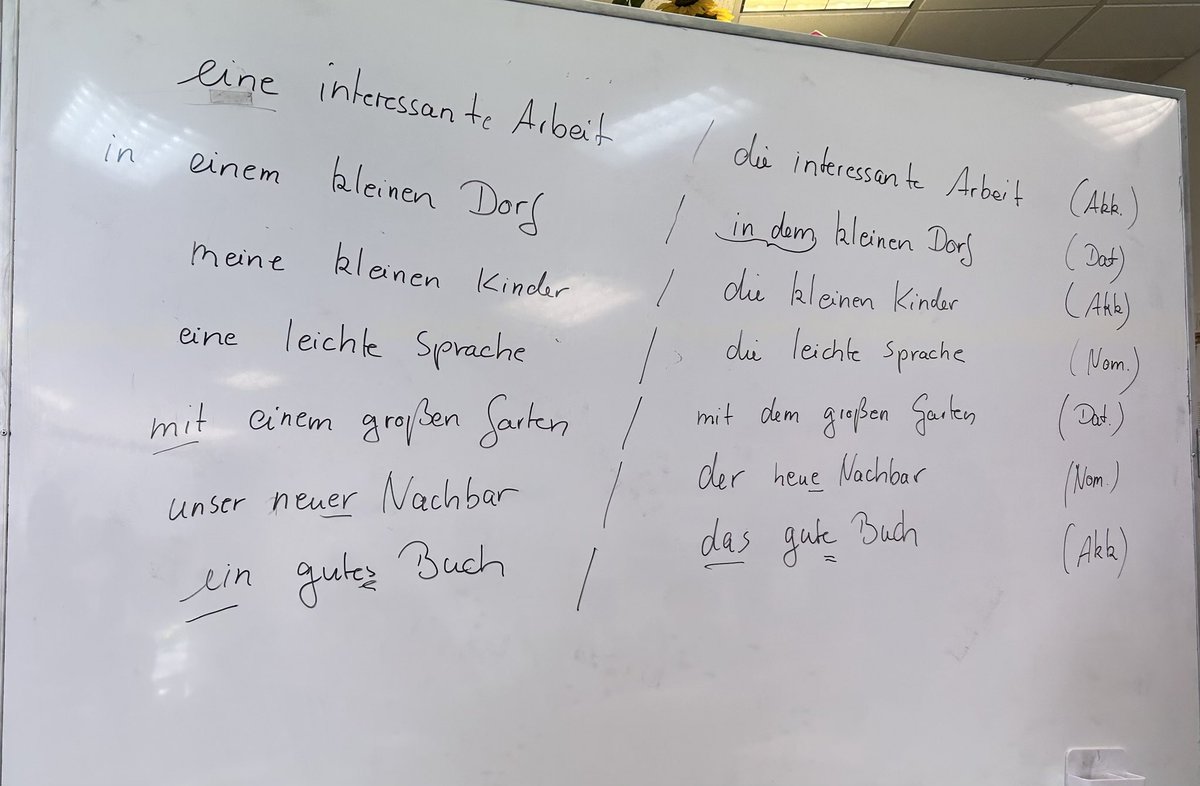 eine interessante Arbeit / die interessante Arbeit (Akk.)
in einem kleinen Dorf / in dem kleinen Dorf (Dat)
meine kleinen Kinder / die kleinen Kinder (Akk)
eine leichte Sprache / die leichte Sprache (Nom.)
mit einem großen Garten / mit dem großen Garten (Dat.)
unser neuer Nachbar / der neue Nachbar (Nom.)
ein gutes Buch / das gute Buch (Akk)